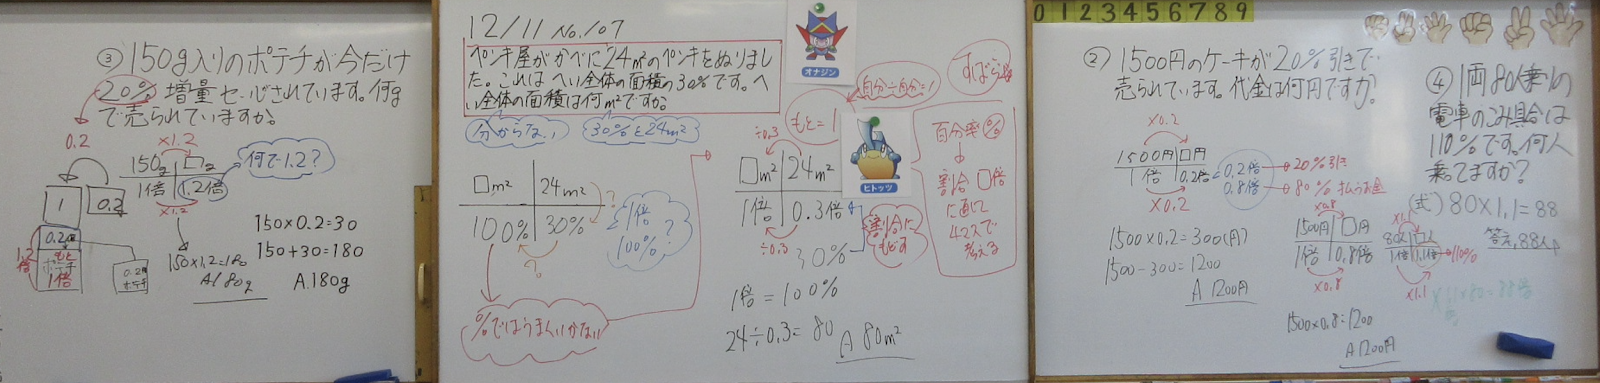 ③150g入りのポテチが今だけ
20%増量セールされています。何g
で売られていますか。
0.2
×1.2
150g □g
1倍 1.2倍
×1.2
何で1.2?
1
0.2
0.2倍
もと
ポテチ
1倍
1.2倍
0.2倍
ポテチ
150×1.2=180
A180g
150×0.2=30
150+30=180
A.180g
12/11 No.107
ペンキ屋がかべに24m²のペンキをぬりまし
た。これはへい全体の面積の30%です。へ
い全体の面積は何m²ですか。
分からない
30%と24m²
オナジン
自分÷自分=1
すばらしい
もと=1
ヒトッツ
□m² 24m²
100% 30%
?
?
1倍
100%?
%ではうまくいかない
÷0.3
□m² 24m²
1倍 0.3倍
÷0.3
30%
割合に
もどす
百分率%
割合□倍
に直して
4マスで
考える
1倍=100%
24÷0.3=80
A 80m²
0 1 2 3 4 5 6 7 8 9
②1500円のケーキが20%引きで
売られています。代金は何円ですか?
×0.2
1500円 □円
1倍 0.2倍
×0.2
0.2倍 20%引き
0.8倍 80%払うお金
1500×0.2=300(円)
1500-300=1200
A 1200円
×0.8
1500円 □円
1倍 0.8倍
×0.8
1500×0.8=1200
A1200円
④1両80人乗りの
電車のこみ具合は
110%です。何人
乗ってますか?
(式)80×1.1=88
答え.88人
×1.1
80人 □人
1倍 1.1倍
110%
×1.1